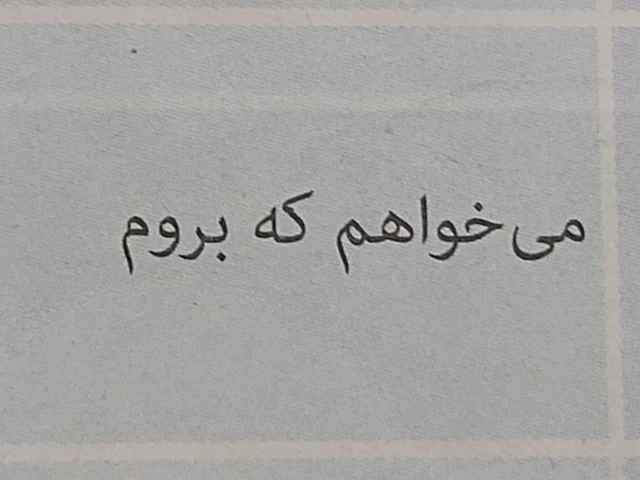 می‌خواهم که بروم